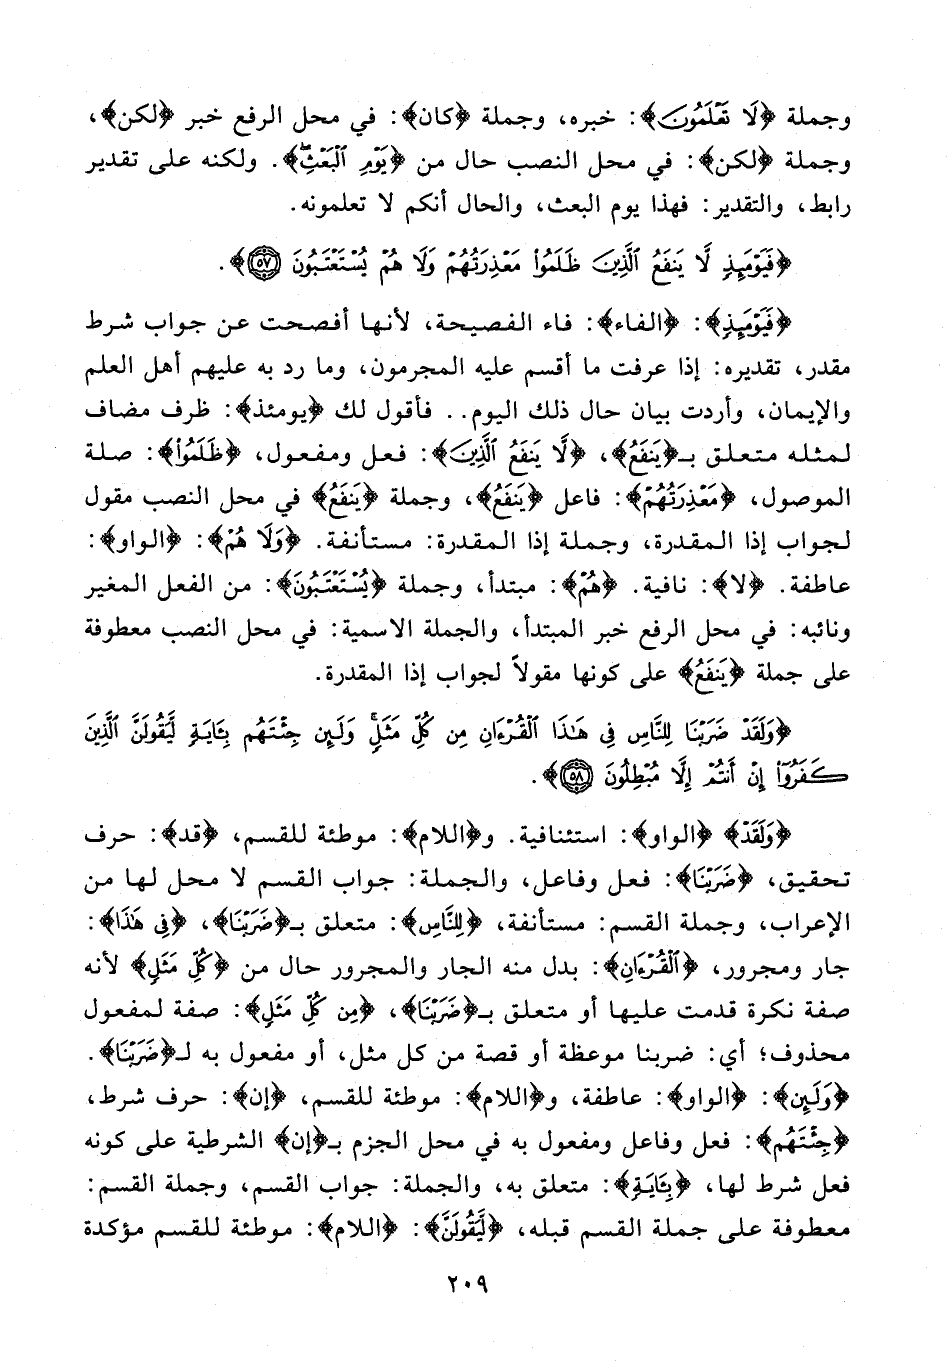 وجملة ﴿لَا تَعْلَمُونَ﴾: خبره، وجملة ﴿كان﴾: في محل الرفع خبر ﴿لكن﴾،
وجملة ﴿لكن﴾: في محل النصب حال من ﴿يَوْمِ الْبَعْثِ﴾. ولكنه على تقدير
رابط، والتقدير: فهذا يوم البعث، والحال أنكم لا تعلمونه.
﴿فَيَوْمَئِذٍ لَّا يَنفَعُ الَّذِينَ ظَلَمُوا مَعْذِرَتُهُمْ وَلَا هُمْ يُسْتَعْتَبُونَ ٥٧﴾.
﴿فَيَوْمَئِذٍ﴾: ﴿الفاء﴾: فاء الفصيحة، لأنها أفصحت عن جواب شرط
مقدر، تقديره: إذا عرفت ما أقسم عليه المجرمون، وما رد به عليهم أهل العلم
والإيمان، وأردت بيان حال ذلك اليوم.. فأقول لك ﴿يومئذ﴾: ظرف مضاف
لمثله متعلق بـ﴿يَنفَعُ﴾، ﴿لَّا يَنفَعُ الَّذِينَ﴾: فعل ومفعول، ﴿ظَلَمُوا﴾: صلة
الموصول، ﴿مَعْذِرَتُهُمْ﴾: فاعل ﴿يَنفَعُ﴾، وجملة ﴿يَنفَعُ﴾ في محل النصب مقول
لجواب إذا المقدرة، وجملة إذا المقدرة: مستأنفة. ﴿وَلَا هُمْ﴾: ﴿الواو﴾:
عاطفة. ﴿لا﴾: نافية. ﴿هُمْ﴾: مبتدأ، وجملة ﴿يُسْتَعْتَبُونَ﴾: من الفعل المغير
ونائبه: في محل الرفع خبر المبتدأ، والجملة الاسمية: في محل النصب معطوفة
على جملة ﴿يَنفَعُ﴾ على كونها مقولاً لجواب إذا المقدرة.
﴿وَلَقَدْ ضَرَبْنَا لِلنَّاسِ فِي هَٰذَا الْقُرْءَانِ مِن كُلِّ مَثَلٍ وَلَئِن جِئْتَهُم بِـَٔايَةٍ لَّيَقُولَنَّ الَّذِينَ
كَفَرُوا إِنْ أَنتُمْ إِلَّا مُبْطِلُونَ ٥٨﴾.
﴿وَلَقَدْ﴾ ﴿الواو﴾: استئنافية. و﴿اللام﴾: موطئة للقسم، ﴿قد﴾: حرف
تحقيق، ﴿ضَرَبْنَا﴾: فعل وفاعل، والجملة: جواب القسم لا محل لها من
الإعراب، وجملة القسم: مستأنفة، ﴿لِلنَّاسِ﴾: متعلق بـ﴿ضَرَبْنَا﴾، ﴿فِي هَٰذَا﴾:
جار ومجرور، ﴿الْقُرْءَانِ﴾: بدل منه الجار والمجرور حال من ﴿كُلِّ مَثَلٍ﴾ لأنه
صفة نكرة قدمت عليها أو متعلق بـ﴿ضَرَبْنَا﴾، ﴿مِن كُلِّ مَثَلٍ﴾: صفة لمفعول
محذوف؛ أي: ضربنا موعظة أو قصة من كل مثل، أو مفعول به لـ﴿ضَرَبْنَا﴾.
﴿وَلَئِن﴾: ﴿الواو﴾: عاطفة، و﴿اللام﴾: موطئة للقسم، ﴿إن﴾: حرف شرط،
﴿جِئْتَهُم﴾: فعل وفاعل ومفعول به في محل الجزم بـ﴿إن﴾ الشرطية على كونه
فعل شرط لها، ﴿بِـَٔايَةٍ﴾: متعلق به، والجملة: جواب القسم، وجملة القسم:
معطوفة على جملة القسم قبله، ﴿لَّيَقُولَنَّ﴾: ﴿اللام﴾: موطئة للقسم مؤكدة
٢٠٩